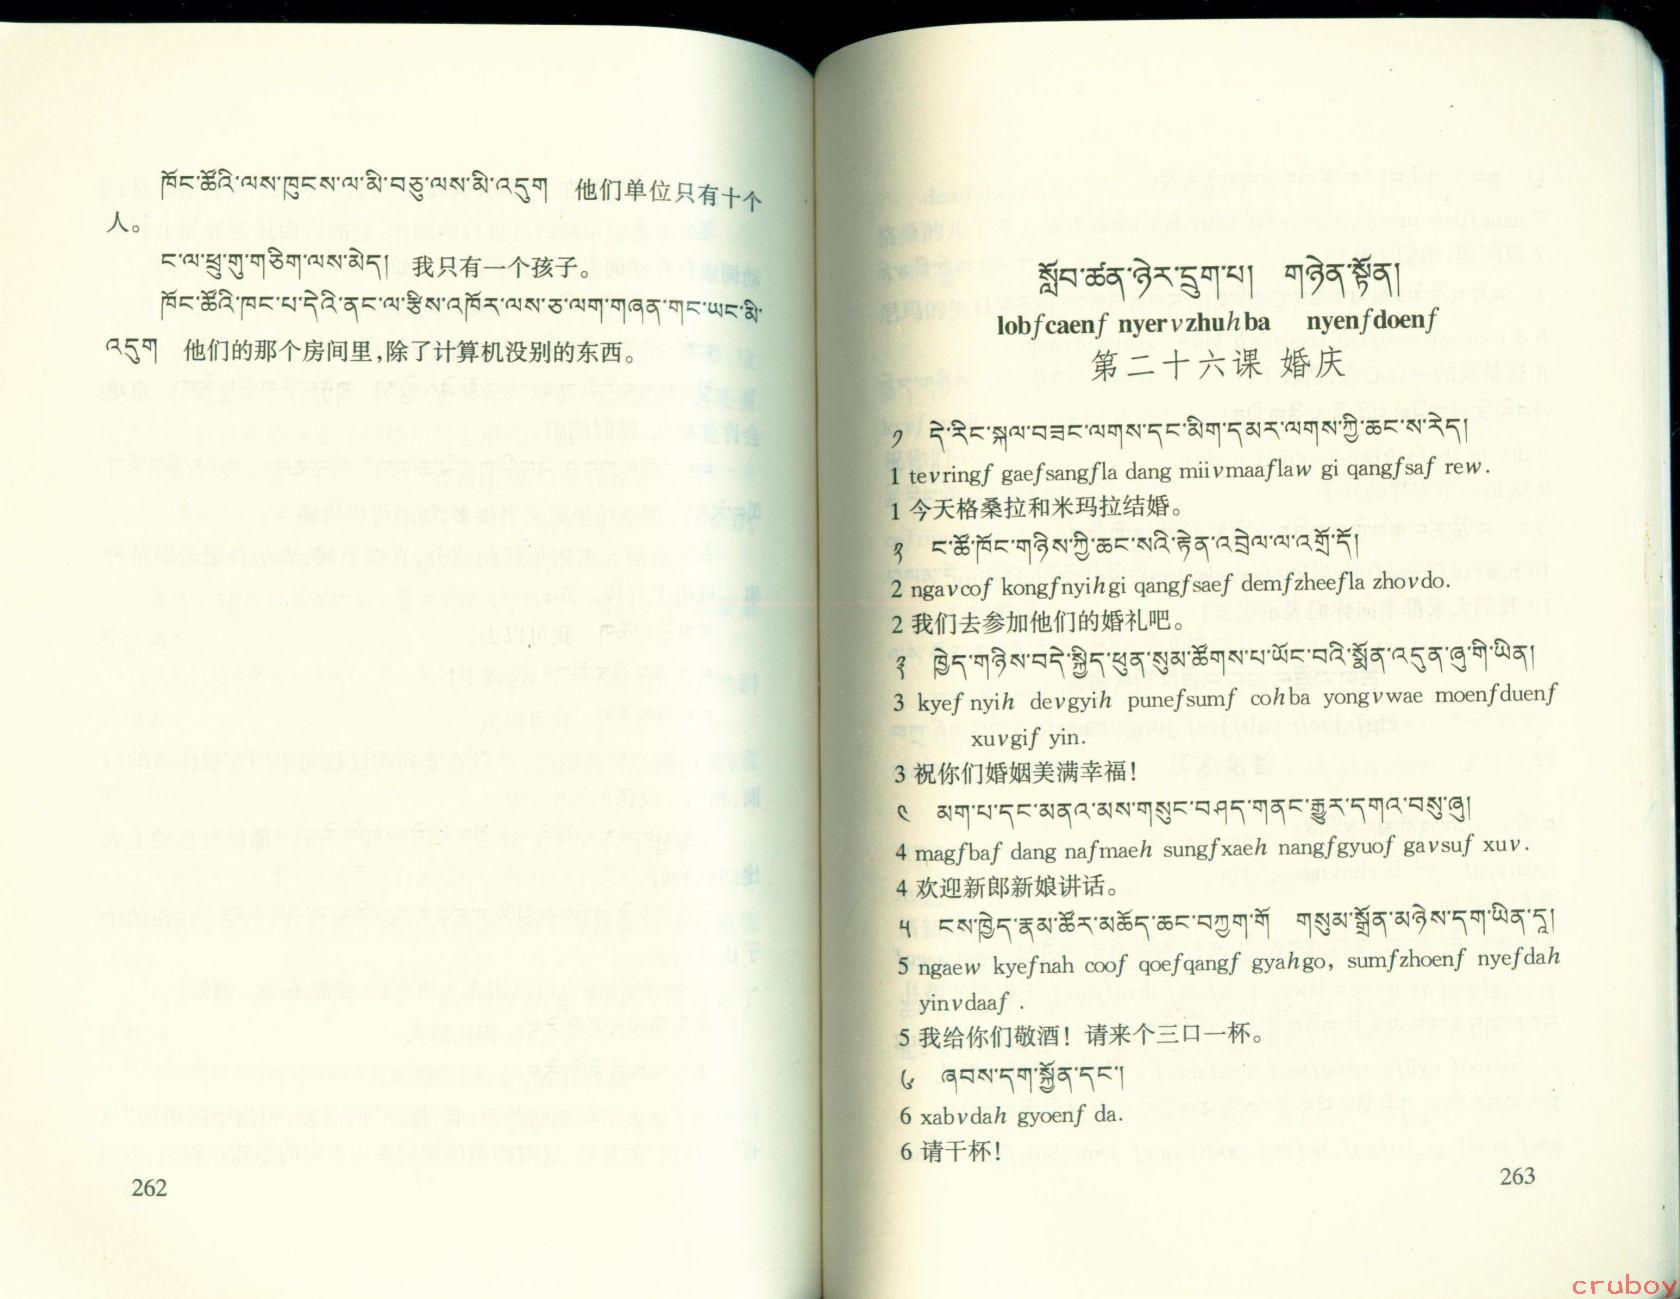 ཁོང་ཚོའི་ལས་ཁུངས་ལ་མི་བཅུ་ལས་མི་འདུག 他们单位只有十个
人。
ང་ལ་ཕྲུ་གུ་གཅིག་ལས་མེད། 我只有一个孩子。
ཁོང་ཚོའི་ཁང་པ་དེའི་ནང་ལ་རྩིས་འཁོར་ལས་ཅ་ལག་གཞན་གང་ཡང་མི་
འདུག 他们的那个房间里,除了计算机没别的东西。
262
སློབ་ཚན་ཉེར་དྲུག་པ། གཉེན་སྟོན།
lobfcaenf nyervzhuhba nyenfdoenf
第二十六课 婚庆
༡ དེ་རིང་སྐལ་བཟང་ལགས་དང་མིག་དམར་ལགས་ཀྱི་ཆང་ས་རེད།
1 tevringf gaefsangfla dang miivmaaflaw gi qangfsaf rew.
1 今天格桑拉和米玛拉结婚。
༢ ང་ཚོ་ཁོང་གཉིས་ཀྱི་ཆང་སའི་རྟེན་འབྲེལ་ལ་འགྲོ་དོ།
2 ngavcof kongfnyihgi qangfsaef demfzheefla zhovdo.
2 我们去参加他们的婚礼吧。
༣ ཁྱེད་གཉིས་བདེ་སྐྱིད་ཕུན་སུམ་ཚོགས་པ་ཡོང་བའི་སྨོན་འདུན་ཞུ་གི་ཡིན།
3 kyef nyih devgyih punefsumf cohba yongvwae moenfduenf
xuvgif yin.
3 祝你们婚姻美满幸福!
༤ མག་པ་དང་མནའ་མས་གསུང་བཤད་གནང་རྒྱུར་དགའ་བསུ་ཞུ།
4 magfbaf dang nafmaeh sungfxaeh nangfgyuof gavsuf xuv.
4 欢迎新郎新娘讲话。
༥ ངས་ཁྱེད་རྣམ་ཚོར་མཆོད་ཆང་བཀྱག་གོ གསུམ་སྒྲོན་མཉེས་དག་ཡིན་དཱ།
5 ngaew kyefnah coof qoefqangf gyahgo, sumfzhoenf nyefdah
yinvdaaf .
5 我给你们敬酒! 请来个三口一杯。
༦ ཞབས་དག་སྐྱོན་དང་།
6 xabvdah gyoenf da.
6 请干杯!
263
cruboy